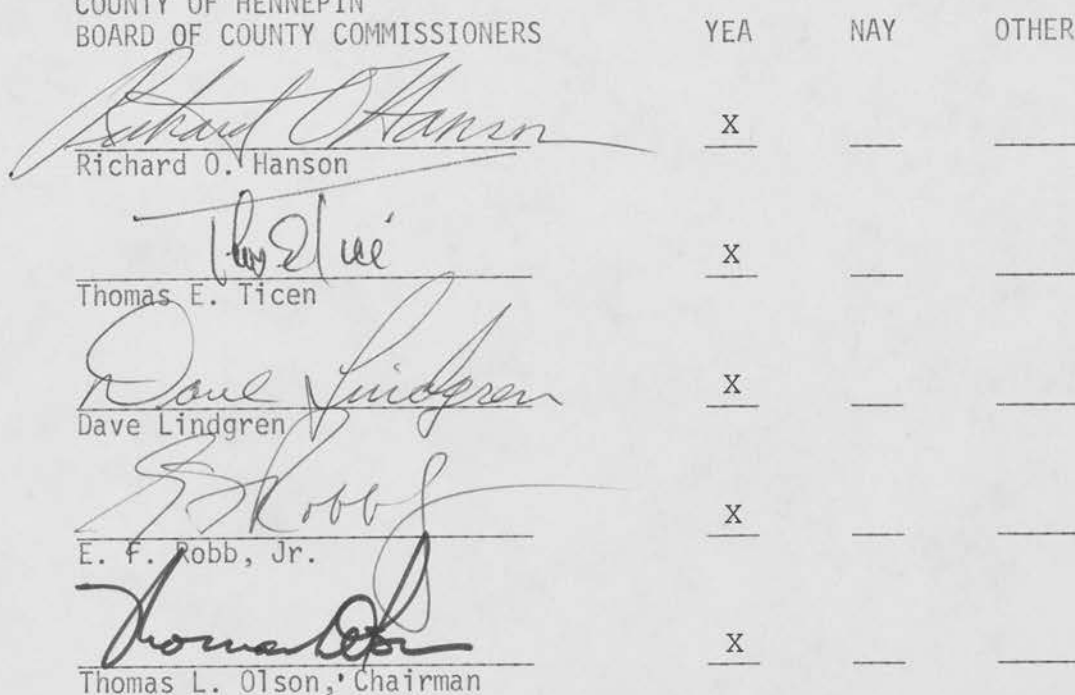 COUNTY OF HENNEPIN
BOARD OF COUNTY COMMISSIONERS YEA NAY OTHER
Richard O Hanson X
Richard O. Hanson
Thos E Tice X
Thomas E. Ticen
Dave Lindgren X
Dave Lindgren
E F Robb Jr X
E. F. Robb, Jr.
Thomas L Olson X
Thomas L. Olson, Chairman